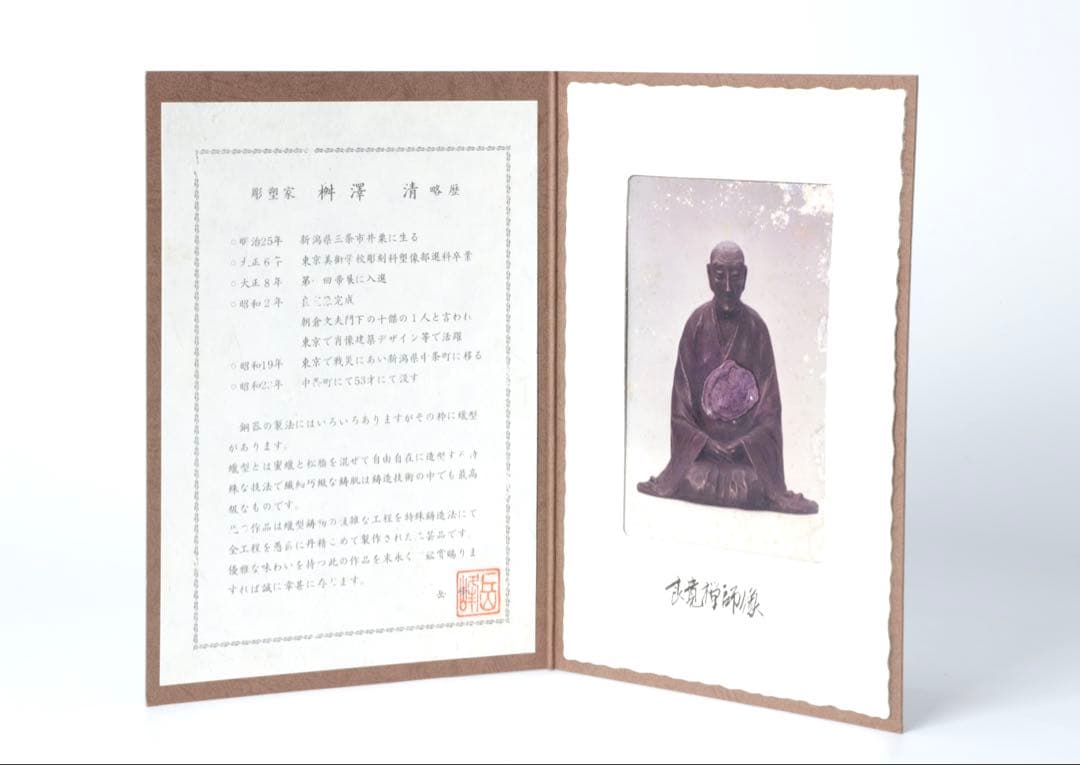 彫塑家 桝澤 清 略歴
○明治25年 新潟県三条市井栗に生る
○大正6年 東京美術学校彫刻科塑像部選科卒業
○大正8年 第 回帝展に入選
○昭和2年 完成
朝倉文夫門下の十傑の1人と言われ
東京で肖像建築デザイン等で活躍
○昭和19年 東京で戦災にあい新潟県中条町に移る
○昭和2 年 中 町にて53才にて没す
銅器の製法にはいろいろありますがその粋に蠟型
があります。
蠟型とは蜜蠟と松脂を混ぜて自由自在に造型する特
殊な技法で繊細巧緻な鋳肌は鋳造技術の中でも最高
級なものです。
作品は蠟型鋳物の複雑な工程を特殊鋳造法にて
全工程を 丹精こめて製作された 芸品です。
優雅な味わいを持つ此の作品を末永く 鑑賞賜りま
すれば誠に幸甚に存じます。
岳
禅師像